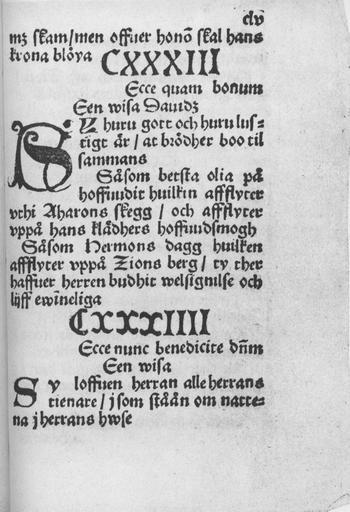 clv
mz skam/men offuer honō skal hans
krona blöya
CXXXIII
Ecce quam bonum
Een wisa Dauidz
SY huru gott och huru lus⸗
tigt är/at brödher boo til
sammans
Såsom betsta olia på
hoffuudit huilkin affflyter
vthi Aharons skegg / och affflyter
vppå hans klädhers hoffuudsmogh
Såsom Hermons dagg huilken
affflyter vppå Zions berg/ty ther
haffuer herren budhit welsignilse och
lijff ewīneliga
CXXXIIII
Ecce nunc benedicite dn̄m
Een wisa
Sy loffuen herran alle herrans
tienare/jsom ståån om natte⸗
na j herrans hwse